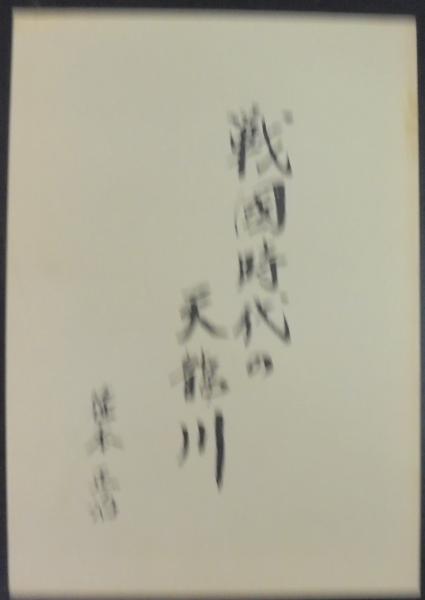 戦國時代の
天龍川